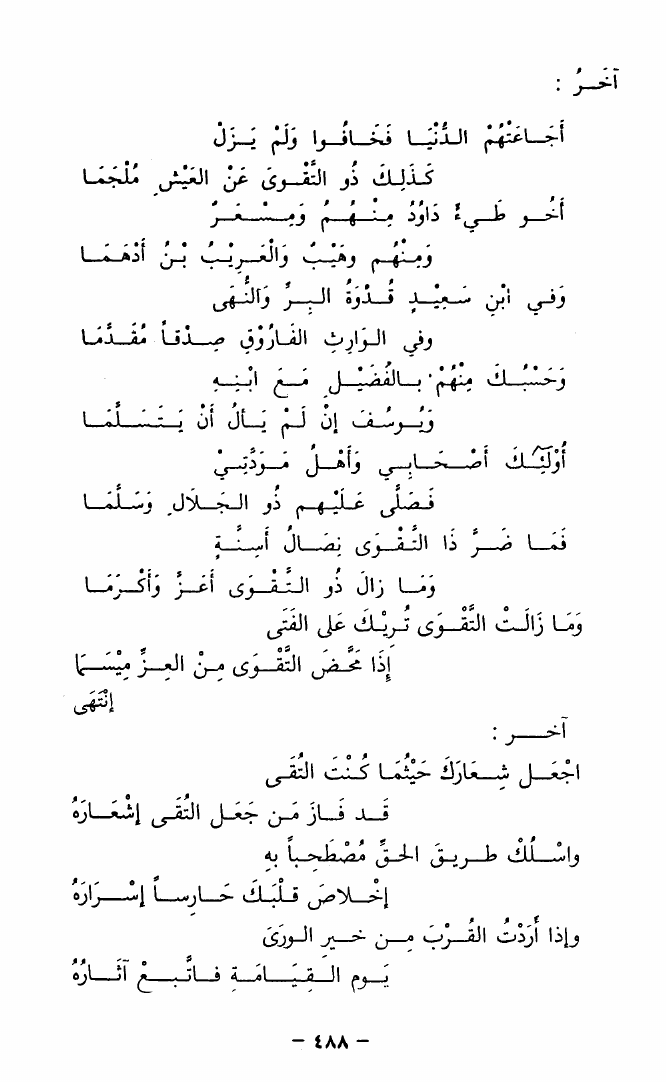 آخَرُ :
أَجَاعَتْهُمُ الدُّنْيَا فَخَافُوا وَلَمْ يَزَلْ
كَذَلِكَ ذُو التَّقْوىَ عَنْ العَيْشِ مُلْجَمَا
أَخُو طَيءٍ دَاوُدُ مِنْهُمْ وَمِسْعَرٌ
وَمِنْهُم وهَيْبٌ وَالْغَرِيْبُ بْنُ أَدْهَمَا
وَفي ابْنِ سَعِيْدٍ قُدْوَةُ البِرِّ وَالنُّهَى
وفي الوَارِثِ الفَارُوْقِ صِدْقاً مُقَدَّمَا
وَحَسْبُكَ مِنْهُمْ بِالْفُضَيْلِ مَعَ ابْنِهِ
وَيُوسُفَ إِنْ لَمْ يَأْلُ أَنْ يَتَسَلَّمَا
أُوْلَئِكَ أَصْحَابِي وَأَهْلُ مَوَدَّتِيْ
فَصَلَّى عَلَيْهِم ذُو الجَلَالِ وَسَلَّمَا
فَمَا ضَرَّ ذَا التَّقْوَى نِصَالُ أَسِنَّةٍ
وَمَا زالَ ذُو التَّقْوَى أَعَزَّ وَأَكْرَمَا
وَمَا زَالَتْ التَّقْوَى تُرِيْكَ عَلى الفَتَى
إِذَا مَحَّضَ التَّقْوَى مِنْ العِزِّ مِيْسَمَا
إِنْتَهَى
آخر :
اجْعَل شِعَارَكَ حَيْثُمَا كُنْتَ التُّقَى
قَد فَازَ مَن جَعَل التُّقَى إِشْعَارَهُ
واسْلُكْ طَريقَ الحَقِّ مُصْطَحِباً بِهِ
إِخْلَاصَ قَلْبَكَ حَارِساً إِسْرَارَهُ
وإذا أَرَدْتَ القُرْبَ مِن خَيرِ الوَرَىَ
يَوم القِيَامَةِ فَاتَّبِعْ آثَارَهُ
– ٤٨٨ –